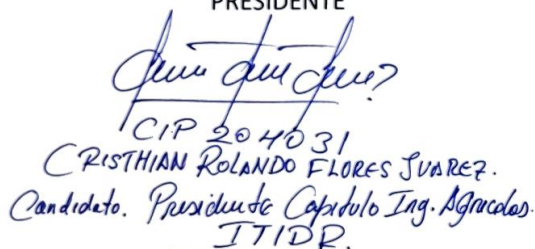 PRESIDENTE
CIP 204031
CRISTHIAN ROLANDO FLORES JUAREZ.
Candidato. Presidente Capitulo Ing. Agricolas.
ITIDR.